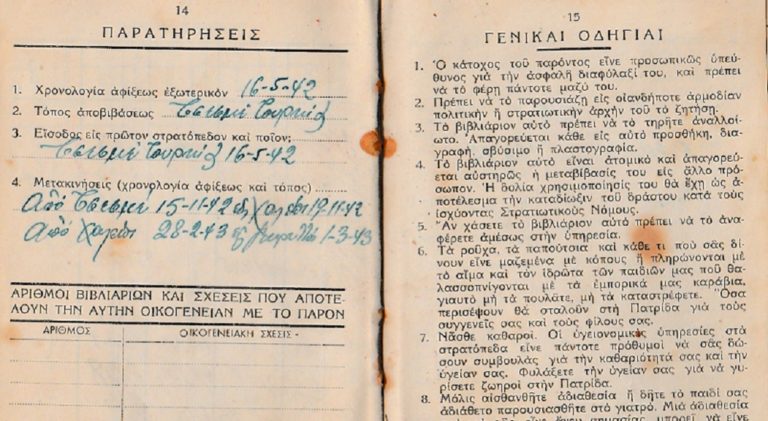 14
ΠΑΡΑΤΗΡΗΣΕΙΣ
1. Χρονολογία ἀφίξεως ἐξωτερικόν 16-5-42
2. Τόπος ἀποβιβάσεως Τσεσμέ Τουρκίας
3. Εἴσοδος εἰς πρῶτον στρατόπεδον καὶ ποῖον;
Τσεσμέ Τουρκίας 16-5-42
4. Μετακινήσεις (χρονολογία ἀφίξεως καὶ τόπος)
ἀπό Τσεσμέ 15-11-42 εἰς Χαλέπι 17-11-42
ἀπό Χαλέπι 28-2-43 εἰς 1-3-43
ΑΡΙΘΜΟΙ ΒΙΒΛΙΑΡΙΩΝ ΚΑΙ ΣΧΕΣΕΙΣ ΠΟΥ ΑΠΟΤΕ-
ΛΟΥΝ ΤΗΝ ΑΥΤΗΝ ΟΙΚΟΓΕΝΕΙΑΝ ΜΕ ΤΟ ΠΑΡΟΝ
ΑΡΙΘΜΟΣ ΟΙΚΟΓΕΝΕΙΑΚΗ ΣΧΕΣΙΣ -
15
ΓΕΝΙΚΑΙ ΟΔΗΓΙΑΙ
1. Ὁ κάτοχος τοῦ παρόντος εἶνε προσωπικῶς ὑπεύ-
θυνος γιὰ τὴν ἀσφαλῆ διαφύλαξί του, καὶ πρέπει
νὰ τὸ φέρῃ πάντοτε μαζύ του.
2. Πρέπει νὰ τὸ παρουσιάζῃ εἰς οἱανδήποτε ἁρμοδίαν
πολιτικὴν ἢ στρατιωτικὴν ἀρχὴν τοῦ τὸ ζητήσῃ.
3. Τὸ βιβλιάριον αὐτὸ πρέπει νὰ τὸ τηρῆτε ἀναλλοί-
ωτο. Ἀπαγορεύεται κάθε εἰς αὐτὸ προσθήκη, δια-
γραφή, σβύσιμο ἢ πλαστογραφία.
4. Τὸ βιβλιάριον αὐτὸ εἶναι ἀτομικὸ καὶ ἀπαγορεύ-
εται αὐστηρῶς ἡ μεταβίβασίς του εἰς ἄλλο πρό-
σωπον. Ἡ δολία χρησιμοποίησίς του θὰ ἔχῃ ὡς ἀ-
ποτέλεσμα τὴν καταδίωξιν τοῦ δράστου κατὰ τοὺς
ἰσχύοντας Στρατιωτικοὺς Νόμους.
5. Ἂν χάσετε τὸ βιβλιάριον αὐτὸ πρέπει νὰ τὸ ἀνα-
φέρετε ἀμέσως στὴν ὑπηρεσία.
6. Τὰ ροῦχα, τὰ παπούτσια καὶ κάθε τι ποὺ σᾶς δί-
νουν εἶνε μαζεμένα μὲ κόπους ἢ πληρώνονται μὲ
τὸ αἷμα καὶ τὸν ἱδρῶτα τῶν παιδιῶν μας ποῦ θα-
λασσοπνίγονται μὲ τὰ ἐμπορικά μας καράβια,
γιαυτὸ μὴ τὰ πουλᾶτε, μὴ τὰ καταστρέφετε. Ὅσα
περισέψουν θὰ σταλοῦν στὴ Πατρίδα γιὰ τοὺς
συγγενεῖς σας καὶ τοὺς φίλους σας.
7. Νᾶσθε καθαροί. Οἱ ὑγειονομικὲς ὑπηρεσίες στὰ
στρατόπεδα εἶνε πάντοτε πρόθυμοι νὰ σᾶς δώ-
σουν συμβουλὰς γιὰ τὴν καθαριότητά σας καὶ τὴν
ὑγείαν σας. Φυλάξετε τὴν ὑγείαν σας γιὰ νὰ γυ-
ρίσετε ζωηροὶ στὴν Πατρίδα.
8. Μόλις αἰσθανθῆτε ἀδιαθεσία ἢ δῆτε τὸ παιδί σας
ἀδιάθετο παρουσιασθῆτε στὸ γιατρό. Μιὰ ἀδιαθεσία